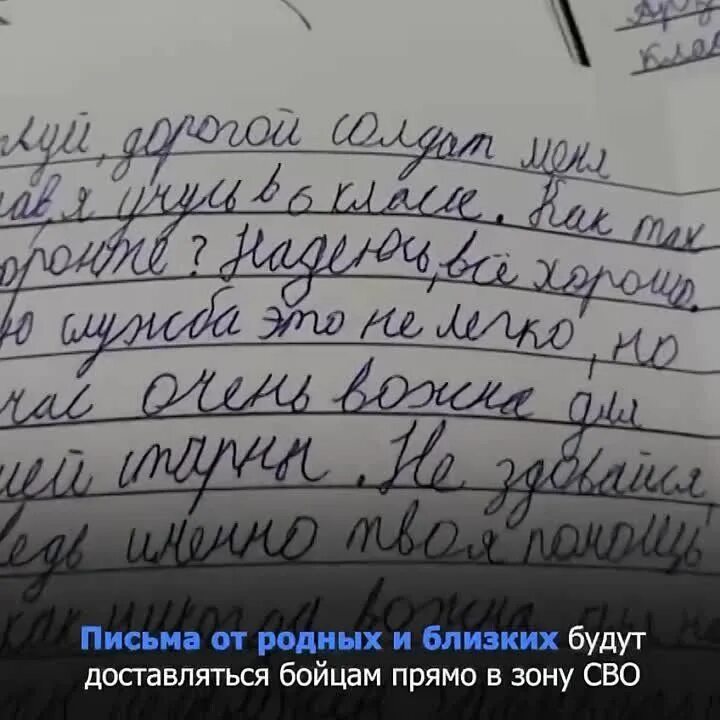 клас
луй, дорогой солдат меня
лав, я учусь в 6 классе. Как там
фронте? Надеюсь, всё хорошо.
ю служба это не легко, но
час очень вожна для
шей старны. Не здовайся,
ведь именно твоя помощь
как никогда вожна для на
Письма от родных и близких будут
доставляться бойцам прямо в зону СВО